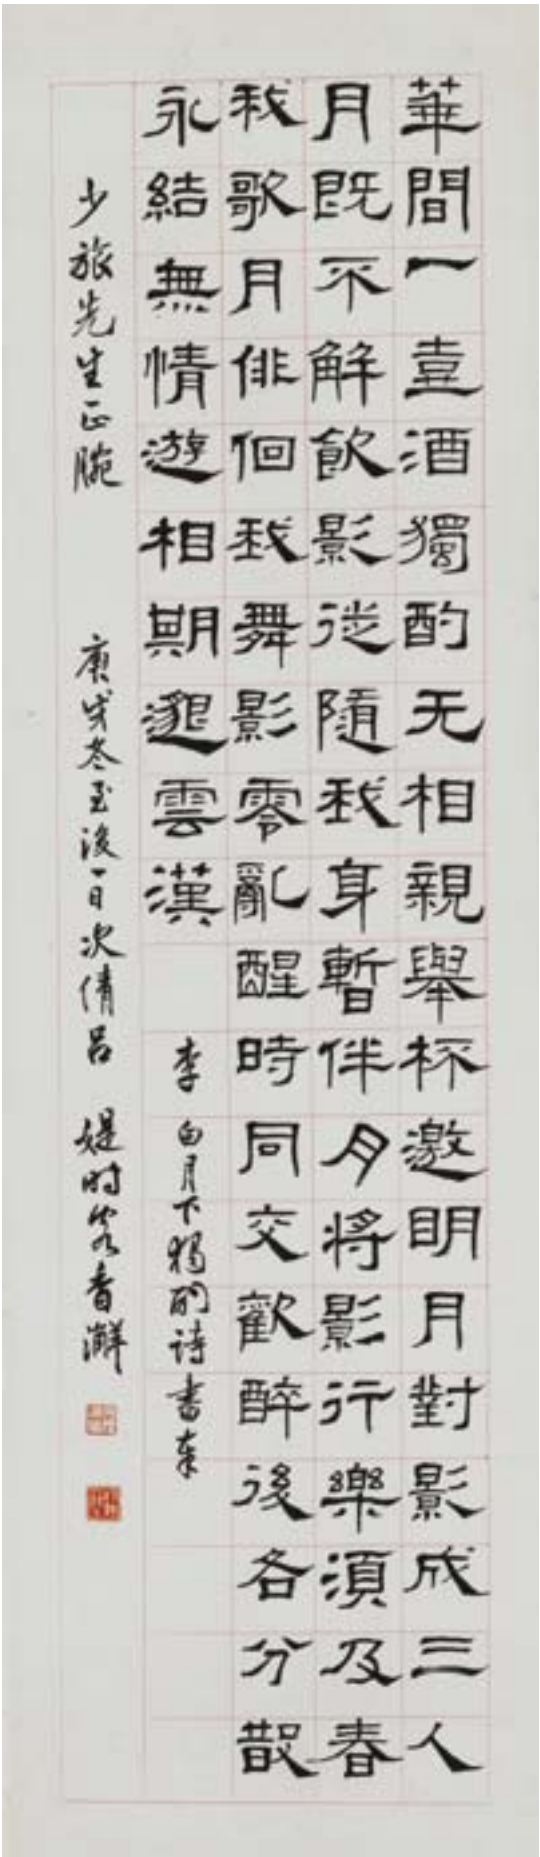 華間一壺酒獨酌无相親舉杯邀明月對影成三人
月既不解飲影徒隨我身暫伴月將影行樂須及春
我歌月俳佪我舞影零亂醒時同交歡醉後各分散
永結無情遊相期邈雲漢
李白月下獨酌詩書奉
少旅先生正腕
庚戌冬至後一日次倩呂媞時客香澥